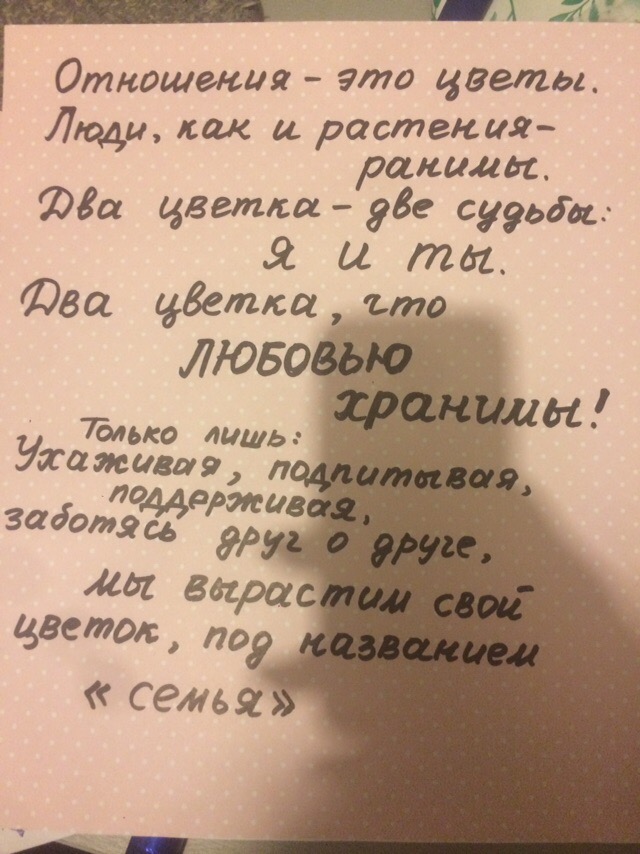 Отношения – это цветы.
Люди, как и растения –
ранимы.
Два цветка – две судьбы:
я и ты.
Два цветка, что
ЛЮБОВЬЮ
хранимы!
Только лишь:
Ухаживая, подпитывая,
поддерживая,
заботясь друг о друге,
мы вырастим свой
цветок, под названием
«семья»